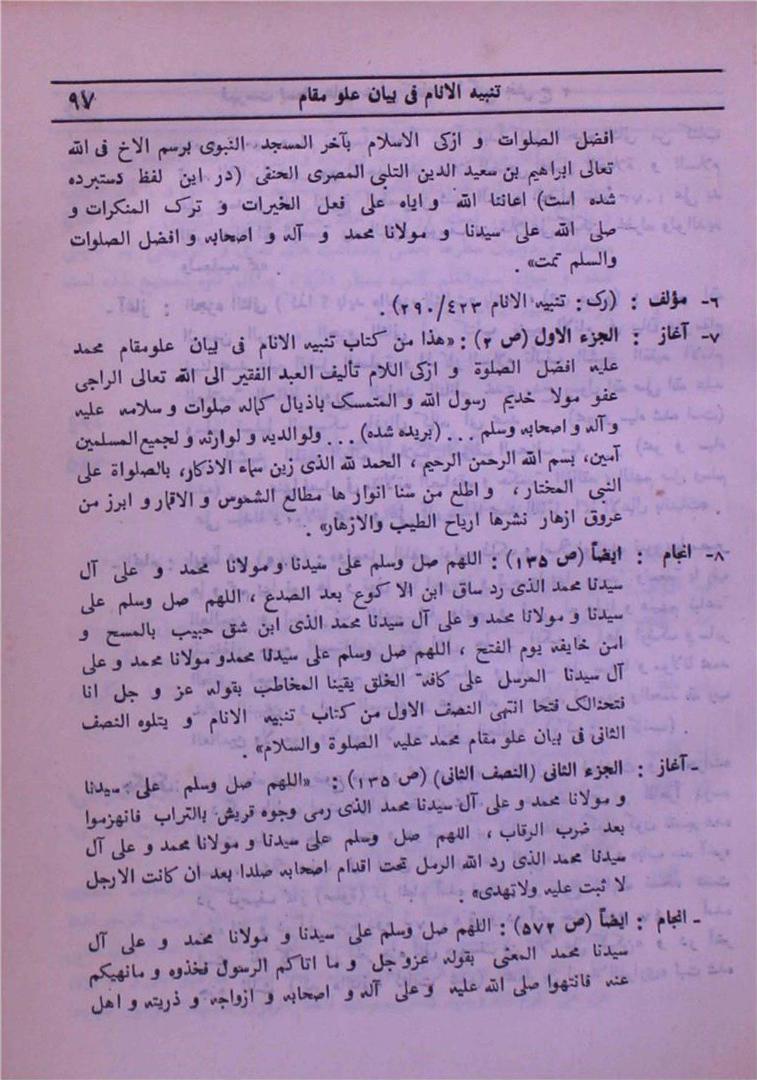 تنبيه الانام فى بيان علو مقام ٩٧
افضل الصلوات و ازكى الاسلام بآخر المسجد النبوى برسم الاخ فى الله
تعالى ابراهيم بن سعيد الدين التلبى المصرى الحنفى (در اين لفظ دستبرده
شده است) اعاننا الله و اياه على فعل الخيرات و ترك المنكرات و
صلى الله على سيدنا و مولانا محمد و آله و اصحابه و افضل الصلوات
والسلم تمت» .
٦- مؤلف : (رك: تنبيه الانام ٢٩٠/٤٢٣) .
٧- آغاز : الجزء الاول (ص ٢) : «هذا من كتاب تنبيه الانام فى بيان علومقام محمد
عليه افضل الصلوة و ازكى اللام تأليف العبد الفقير الى الله تعالى الراجى
عفو مولا خديم رسول الله و المتمسك باذيال كماله صلوات و سلامه عليه
و آله و اصحابه وسلم ... (بريده شده) ... ولوالديه و لوارثه و لجميع المسلمين
آمين، بسم الله الرحمن الرحيم ، الحمد لله الذى زين سماء الاذكار، بالصلواة على
النبى المختار ، و اطلع من سنا انوار ها مطالع الشموس و الاقمار و ابرز من
عروق ازهار نشرها ارياح الطيب والازهار» .
٨- انجام : ايضاً (ص ١٣٥) : اللهم صل وسلم على سيدنا و مولانا محمد و على آل
سيدنا محمد الذى رد ساق ابن الا كوع بعد الصدع ، اللهم صل وسلم على
سيدنا و مولانا محمد و على آل سيدنا محمد الذى ابن شق حبيب بالمسح و
امن خايفه يوم الفتح ، اللهم صل وسلم على سيدنا محمدو مولانا محمد و على
آل سيدنا المرسل على كافة الخلق يقينا المخاطب بقوله عز و جل انا
فتحنالك فتحا انتهى النصف الاول من كتاب تنبيه الانام و يتلوه النصف
الثانى فى بيان علو مقام محمد عليه الصلوة والسلام» .
ـ آغاز : الجزء الثانى (النصف الثانى) (ص ١٣٥) : «اللهم صل وسلم على سيدنا
و مولانا محمد و على آل سيدنا محمد الذى رمى وجوه قريش بالتراب فانهزموا
بعد ضرب الرقاب ، اللهم صل وسلم على سيدنا و مولانا محمد و على آل
سيدنا محمد الذى رد الله الرمل تحت اقدام اصحابه صلدا بعد ان كانت الارجل
لا ثبت عليه ولاتهدى» .
ـ انجام : ايضاً (ص ٥٧٢) : اللهم صل وسلم على سيدنا و مولانا محمد و على آل
سيدنا محمد المعنى بقوله عزو جل و ما اتاكم الرسول فخذوه و مانهيكم
عنه فانتهوا صلى الله عليه و على آله و اصحابه و ازواجه و ذريته و اهل